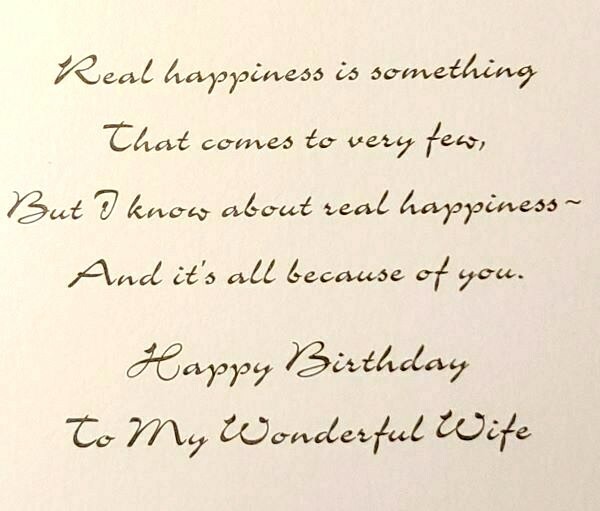 Real happiness is something
That comes to very few,
But I know about real happiness~
And it's all because of you.
Happy Birthday
To My Wonderful Wife